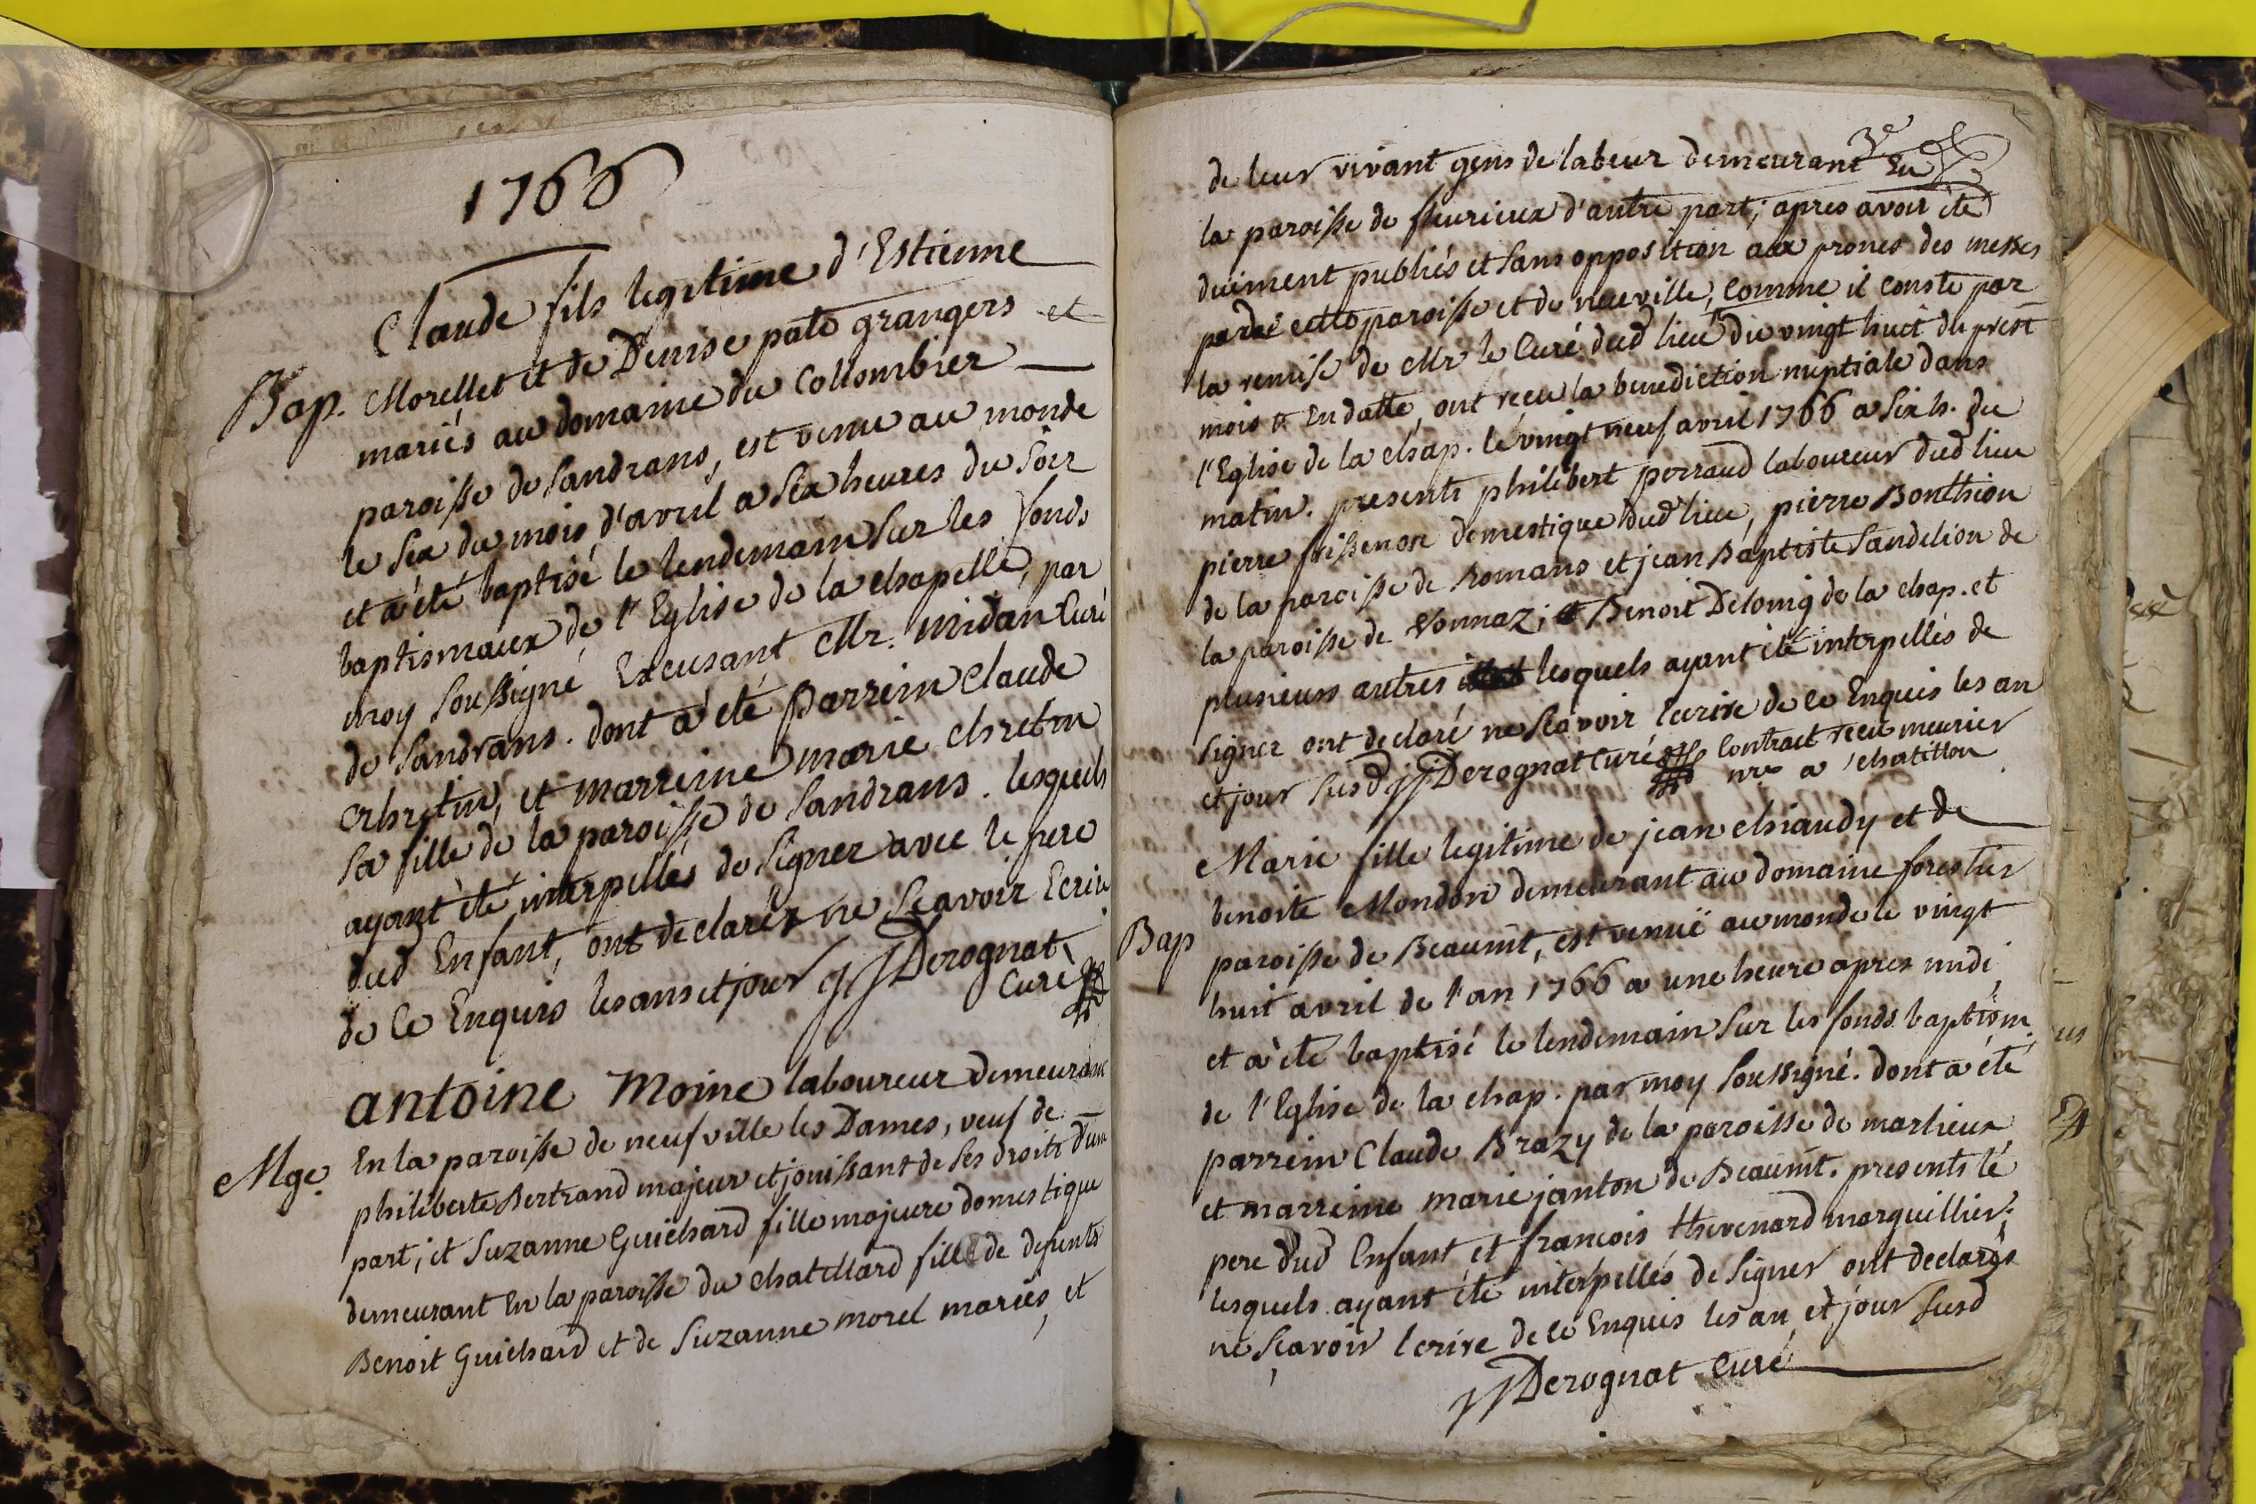 1766
Claude fils legitime d'Estienne
Bap. Morellet et de Denise pate grangers et
mariés au domaine du Collombier
paroisse de Sandrans, est venu au monde
le six du mois d'avril a six heures du soir
et a été baptisé le lendemain sur les fonds
baptismaux de l'Eglise de la chapelle, par
moy soussigné Excusant Mr. midan Curé
de Sandrans. dont a été parrein Claude
chretin, et marreine marie chretin
sa fille de la paroisse de Sandrans. lesquels
ayant été interpellés de signer avec le pere
dud Enfant, ont declarés ne sçavoir Ecrire
de ce Enquis les ans et jour jjDerognat
Curé
antoine Moine laboureur demeurant
Mge. En la paroisse de neufville les Dames, veuf de
philiberte Bertrand majeur et jouissant de ses droits d'une
part; et Suzanne Guichard fille majeure domestique
demeurant En la paroisse du chatellard fille de defunts
Benoit Guichard et de Suzanne morel mariés, et
3e
de leur vivant gens de labeur demeurant En
la paroisse de fleurieux d'autre part; apres avoir été
duement publiés et sans opposition aux prones des messes
par cette paroisse et de neuville, comme il conste par
la remise de Mr le Curé dud lieu du vingt huit du prest
mois En datte, ont receu la benediction nuptiale dans
l'Eglise de la chap. le vingt neuf avril 1766 a six h. du
matin. presents philibert perraud laboureur dud lieu
pierre frissenon domestique dud lieu, pierre Bonthion
de la paroisse de Romans et jean Baptiste Sandelion de
la paroisse de Vonnaz; et Benoit Delomg de la chap. et
plusieurs autres lesquels ayant été interpellés de
signer ont declaré ne sçavoir Ecrire de ce Enquis les an
et jour susd jjDerognat Curé Contract receu meurier
nre a chatillon
Marie fille legitime de jean chiaudy et de
benoite Mondon demeurant au domaine forestier
Bap paroisse de Beaumt, est venuë au monde le vingt
huit avril de l'an 1766 a une heure apres midi,
et a été baptisé le lendemain sur les fonds baptism.
de l'Eglise de la chap. par moy soussigné. dont a été
parrein Claude Brazy de la paroisse de marlieux
et marreine marie janton de Beaumt. presents le
pere dud Enfant et francois thevenard marguillier.
lesquels ayant été interpellés de signer ont declarés
ne sçavoir Ecrire de ce Enquis les an et jour susd
jjDerognat Curé